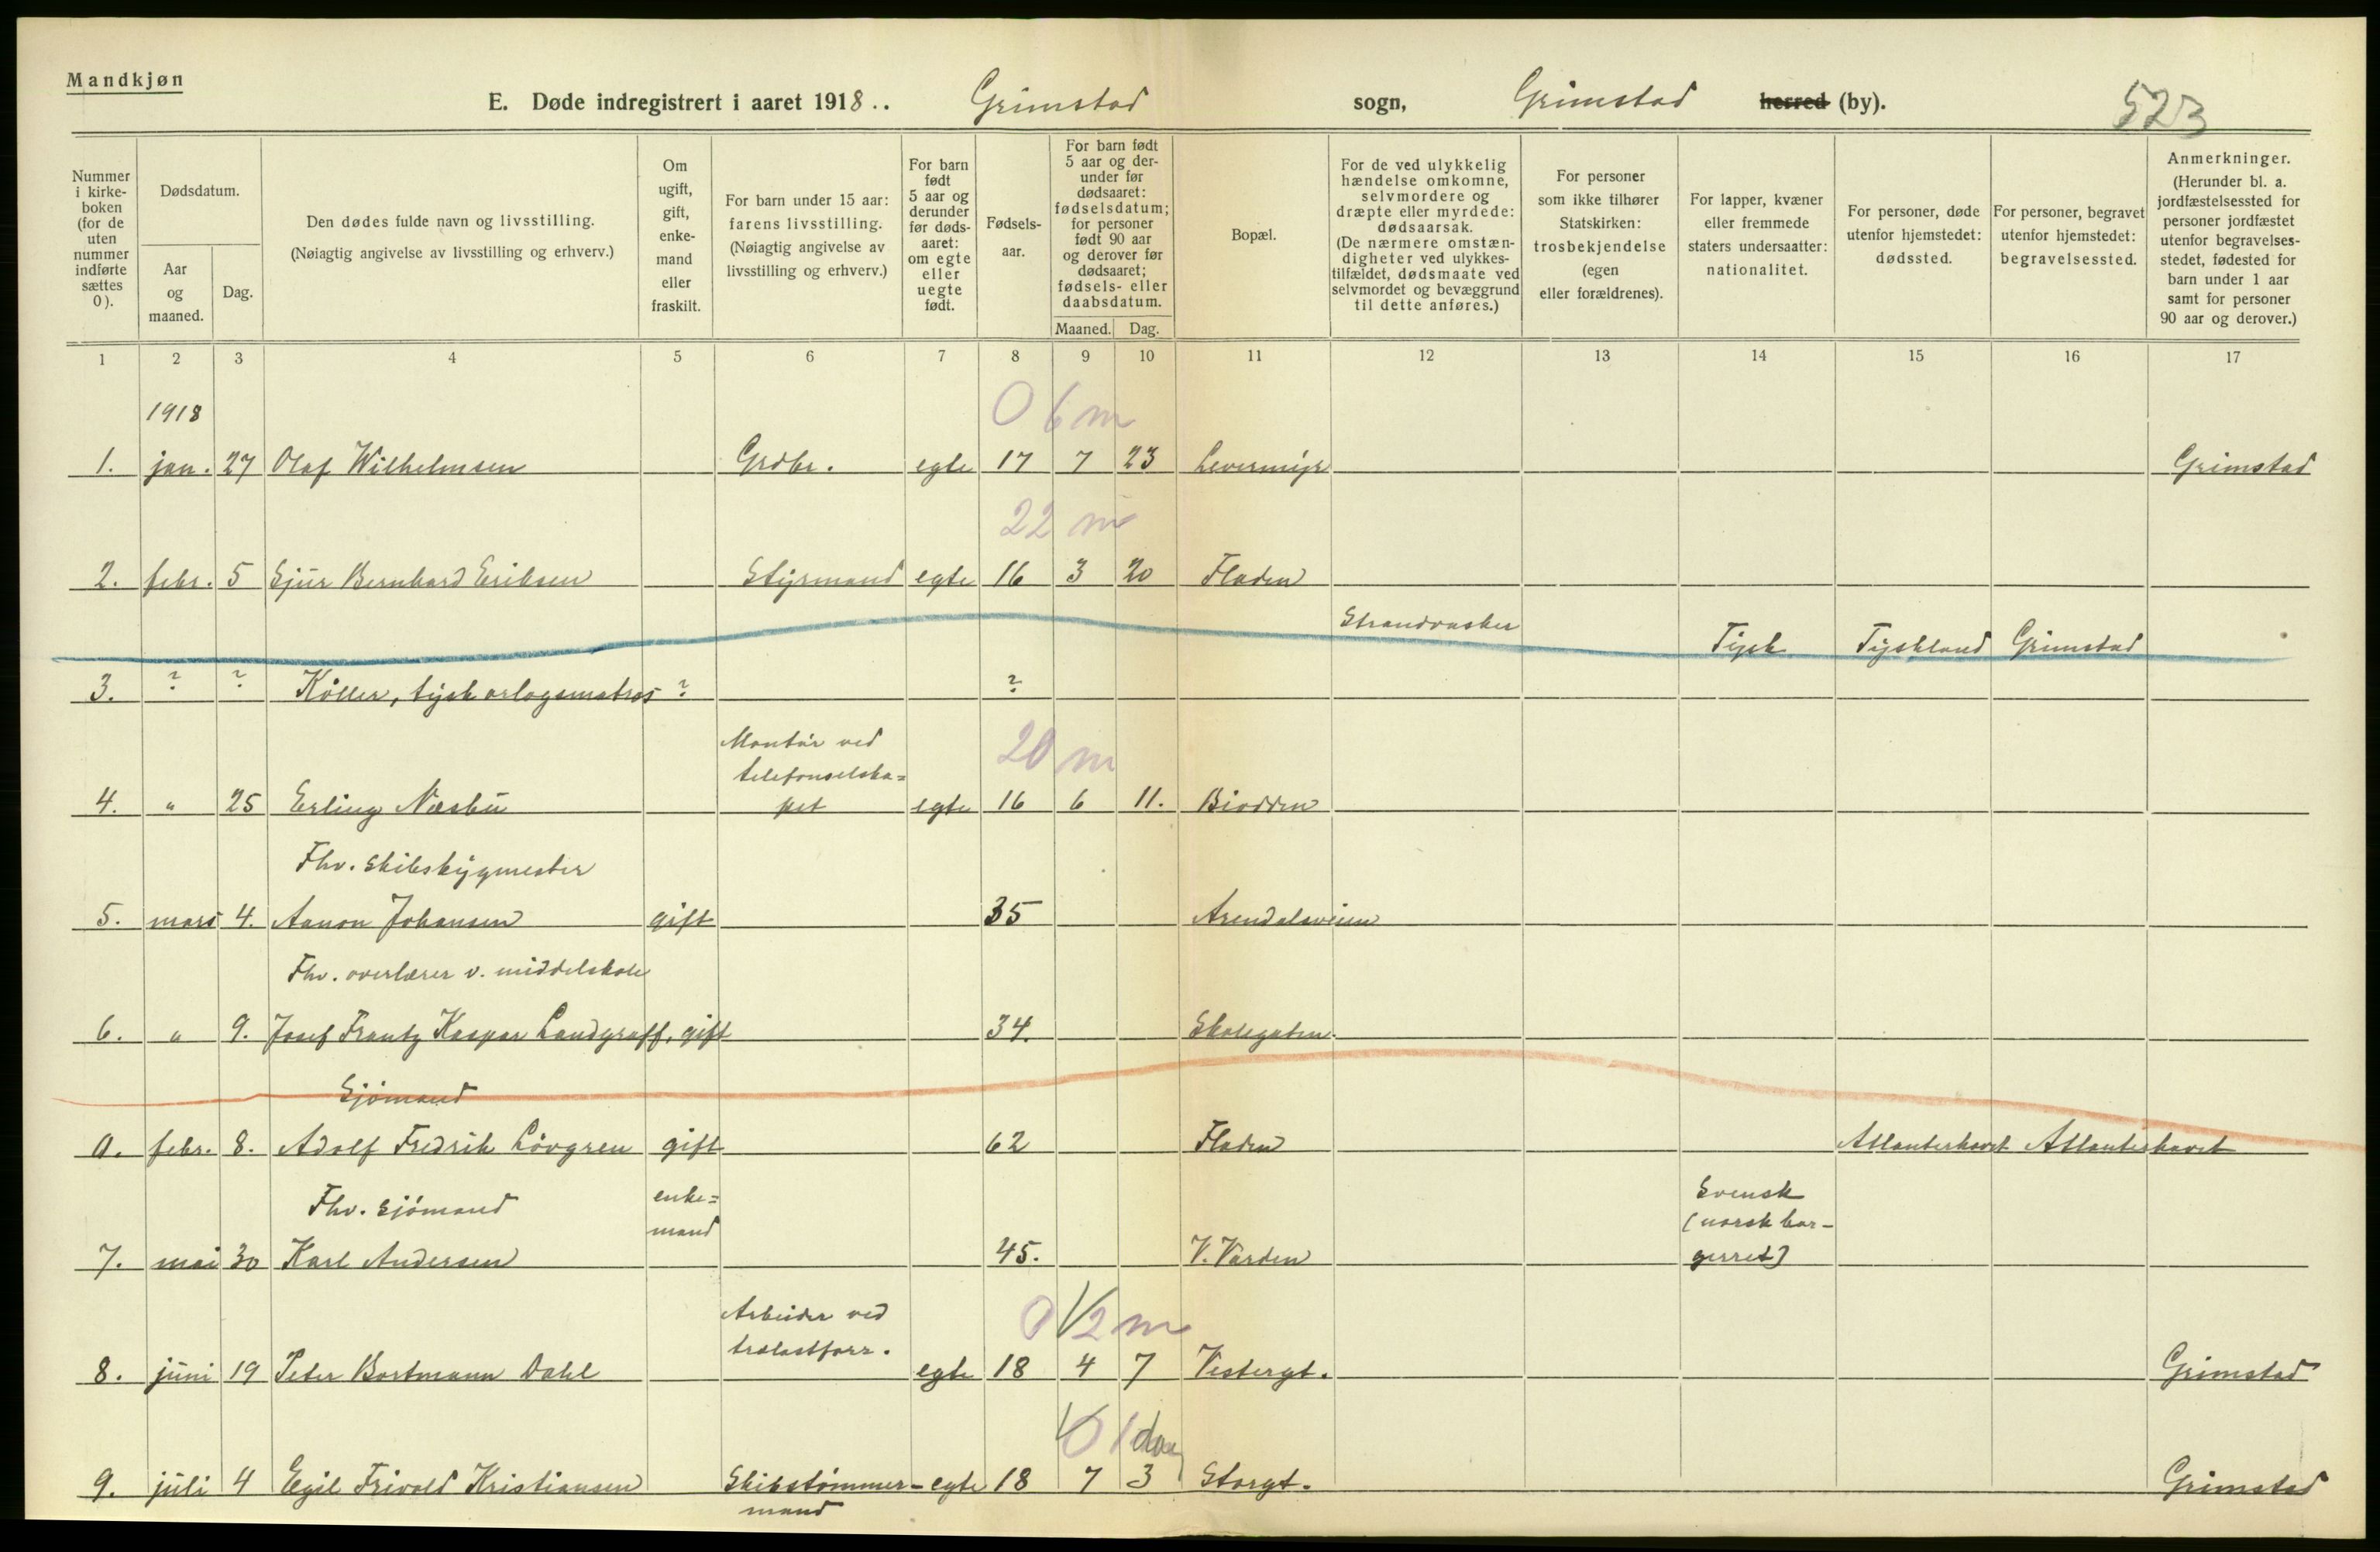 Mandkjøn
E. Døde indregistrert i aaret 1918.. Grimstad sogn, Grimstad herred (by). 523
Nummer i kirke-boken (for de uten nummer indførte sættes 0).
Dødsdatum.
Aar og maaned.
Dag.
Den dødes fulde navn og livsstilling.
(Nøiagtig angivelse av livsstilling og erhverv.)
Om ugift, gift, enke-mand eller fraskilt.
For barn under 15 aar: farens livsstilling.
(Nøiagtig angivelse av livsstilling og erhverv.)
For barn født 5 aar og derunder før døds-aaret: om egte eller uegte født.
Fødsels-aar.
For barn født 5 aar og der-under før dødsaaret: fødselsdatum; for personer født 90 aar og derover før dødsaaret; fødsels- eller daabsdatum.
Maaned. Dag.
Bopæl.
For de ved ulykkelig hændelse omkomne, selvmordere og dræpte eller myrdede: dødsaarsak.
(De nærmere omstæn-digheter ved ulykkes-tilfældet, dødsmaate ved selvmordet og bevæggrund til dette anføres.)
For personer som ikke tilhører Statskirken: trosbekjendelse (egen eller forældrenes).
For lapper, kvæner eller fremmede staters undersaatter: nationalitet.
For personer, døde utenfor hjemstedet: dødssted.
For personer, begravet utenfor hjemstedet: begravelsessted.
Anmerkninger.
(Herunder bl. a. jordfæstelsessted for personer jordfæstet utenfor begravelses-stedet, fødested for barn under 1 aar samt for personer 90 aar og derover.)
1 2 3 4 5 6 7 8 9 10 11 12 13 14 15 16 17
1918
0 6 m
1. jan. 27 Olaf Wilhelmsen Grdbr. egte 17 7 23 Levermyr Grimstad
22 m
2. febr. 5 Sjur Bernhard Eriksen Styrmand egte 16 3 20 Fladen
Strandvasker
Tysk Tyskland Grimstad
3. ? ? Köller, tysk orlogsmatros ? ?
Montör ved
telefonselska=
20 m
4. " 25 Erling Næsbu pet egte 16 6 11. Biodden
Fhv. skibsbygmester
5. mars 4. Aanon Johansen gift 35 Arendalsveien
Fhv. overlærer v. middelskole
6. " 9. Josef Frantz Kaspar Landgraff, gift 34. Skolegaten.
Sjömand
0. febr. 8. Adolf Fredrik Lövgren gift 62 Fladen Atlanterhavet Atlanterhavet
Fhv. sjömand enke=
mand
Svensk
(norsk bor-
7. mai 30 Karl Andersen 45. V. Varden gerret)
Arbeider ved
trælastforr.
0 1/2 m
8. juni 19 Peter Bortmann Dahl egte 18 4 7 Vestergt. Grimstad
0 1 dag
9. juli 4 Egil Frivold Kristiansen Skibstömmer- egte 18 7 3 Storgt. Grimstad
mand